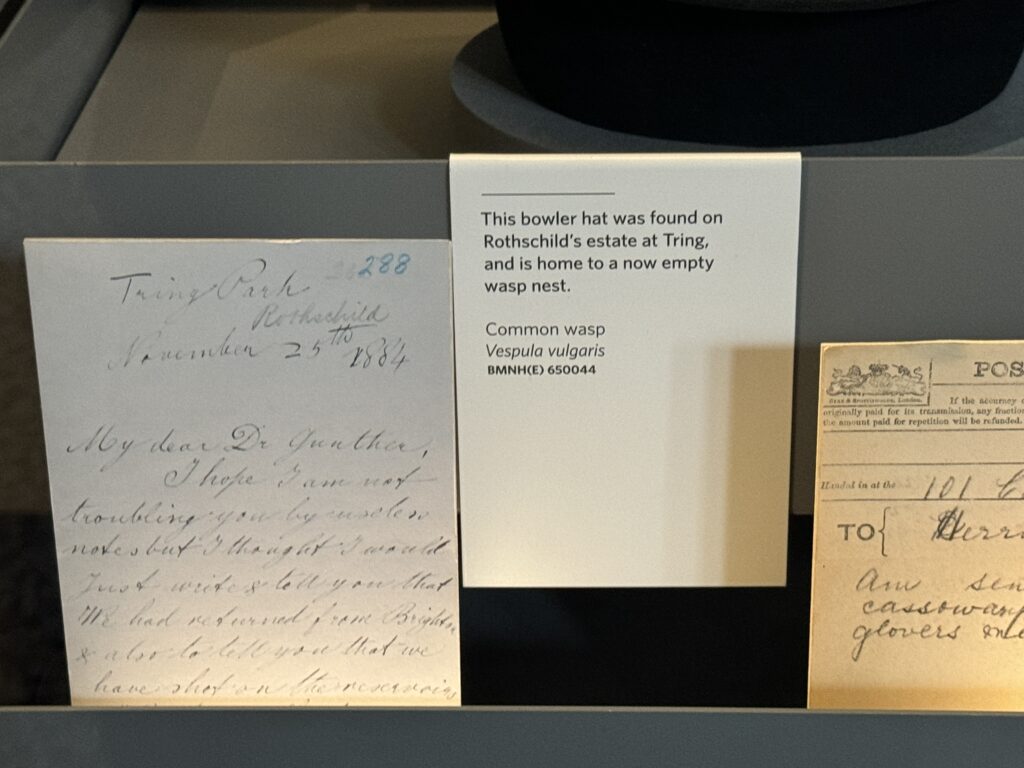 288
Tring Park
Rothschild
November 25th 1884
My dear Dr Gunther,
I hope I am not
troubling you by useless
notes but I thought I would
Just write & tell you that
We had returned from Brighton
& also to tell you that we
have shot on the reservoirs
This bowler hat was found on
Rothschild's estate at Tring,
and is home to a now empty
wasp nest.
Common wasp
Vespula vulgaris
BMNH(E) 650044
POS
If the accuracy o
originally paid for its transmission, any fraction
the amount paid for repetition will be refunded.
Handed in at the 101
TO { Herr
Am sen
cassowary
glovers me